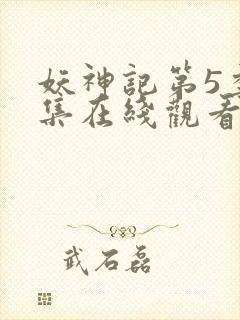 妖神記第5季
集在綫觀看
武石磊